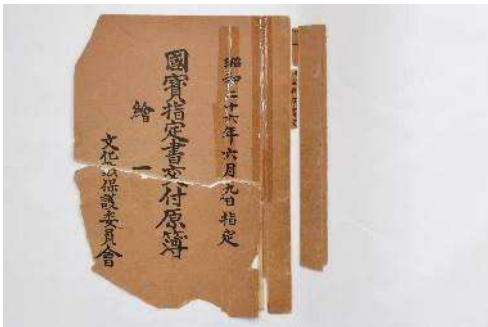 昭和二十六年六月九日指定
國寶指定書交付原簿
繪一
文化財保護委員會